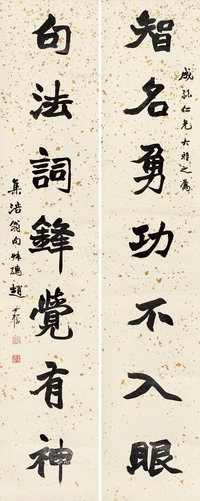 成弥仁兄大雅之属
智名勇功不入眼
句法詞鋒覺有神
集涪翁句 趙